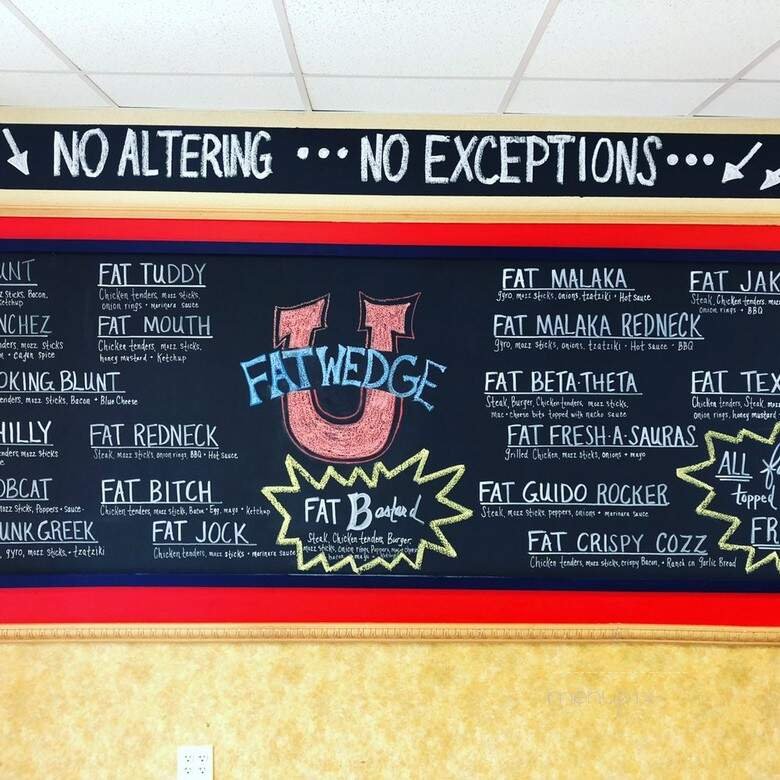 NO ALTERING ... NO EXCEPTIONS...
UNT
z sticks, Bacon,
Ketchup
NCHEZ
nders, mozz sticks
+ Cajun spice
OKING BLUNT
enders, mozz sticks, Bacon + Blue Cheese
HILLY
enders, mozz sticks
OBCAT
mozz sticks, Peppers + sauce
UNK GREEK
, gyro, mozz sticks, + tzatziki
FAT TUDDY
Chicken tenders, mozz sticks,
onion rings + marinara sauce
FAT MOUTH
Chicken tenders, mozz sticks,
honey mustard + Ketchup
FAT REDNECK
Steak, mozz sticks, onion rings, BBQ + Hot sauce
FAT BITCH
Chicken tenders, mozz sticks, Bacon, Egg, mayo + Ketchup
FAT JOCK
Chicken tenders, mozz sticks + marinara sauce
U
FAT WEDGE
FAT Bastard
Steak, Chicken tenders, Burger,
mozz sticks, Onion rings, Peppers, mac + cheese
bacon + mayo + Ketchup
FAT MALAKA
gyro, mozz sticks, onions, tzatziki + Hot sauce
FAT MALAKA REDNECK
gyro, mozz sticks, onions, tzatziki + Hot sauce + BBQ
FAT BETA-THETA
Steak, Burger, Chicken tenders, mozz sticks,
mac + cheese bits topped with nacho sauce
FAT FRESH-A-SAURAS
grilled Chicken, mozz sticks, onions + mayo
FAT GUIDO ROCKER
Steak, mozz sticks, peppers, onions + marinara sauce
FAT CRISPY COZZ
Chicken tenders, mozz sticks, crispy Bacon, + Ranch on Garlic Bread
FAT JAK
Steak, Chicken tenders, moz
onion rings + BBQ
FAT TEX
Chicken tenders, Steak, moz
onion rings, honey mustard
ALL
topped
FR